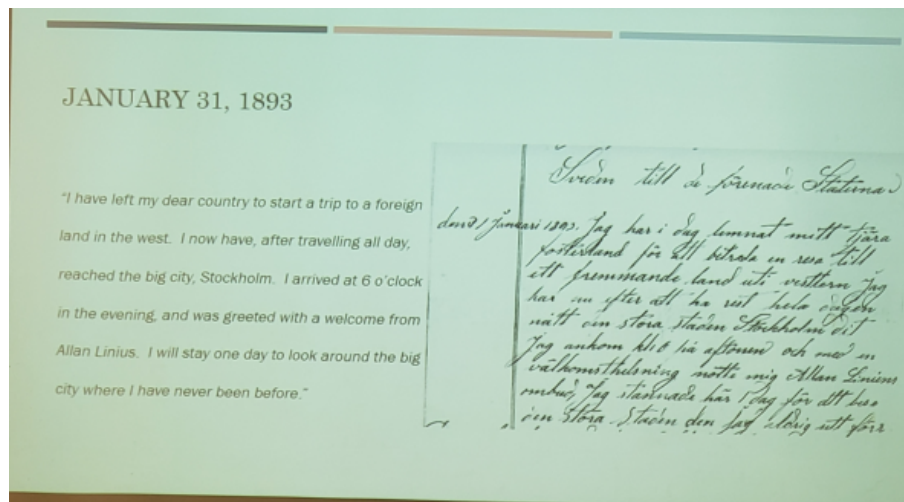 JANUARY 31, 1893
"I have left my dear country to start a trip to a foreign
land in the west. I now have, after travelling all day,
reached the big city, Stockholm. I arrived at 6 o'clock
in the evening, and was greeted with a welcome from
Allan Linius. I will stay one day to look around the big
city where I have never been before."
till de förenade Staterna
Jag har i dag lemnat mitt kjära
fosterland för att beträda en resa till
ett fremmande land uti vestern Jag
har nu efter att ha rest hela dagen
nått den stora staden Stockholm dit
Jag ankom kl 6 på aftonen och med en
välkomsthelsning mötte mig Allan Linius
ombud, Jag stannade här 1 dag för att bese
den stora Staden den jag aldrig sett förr